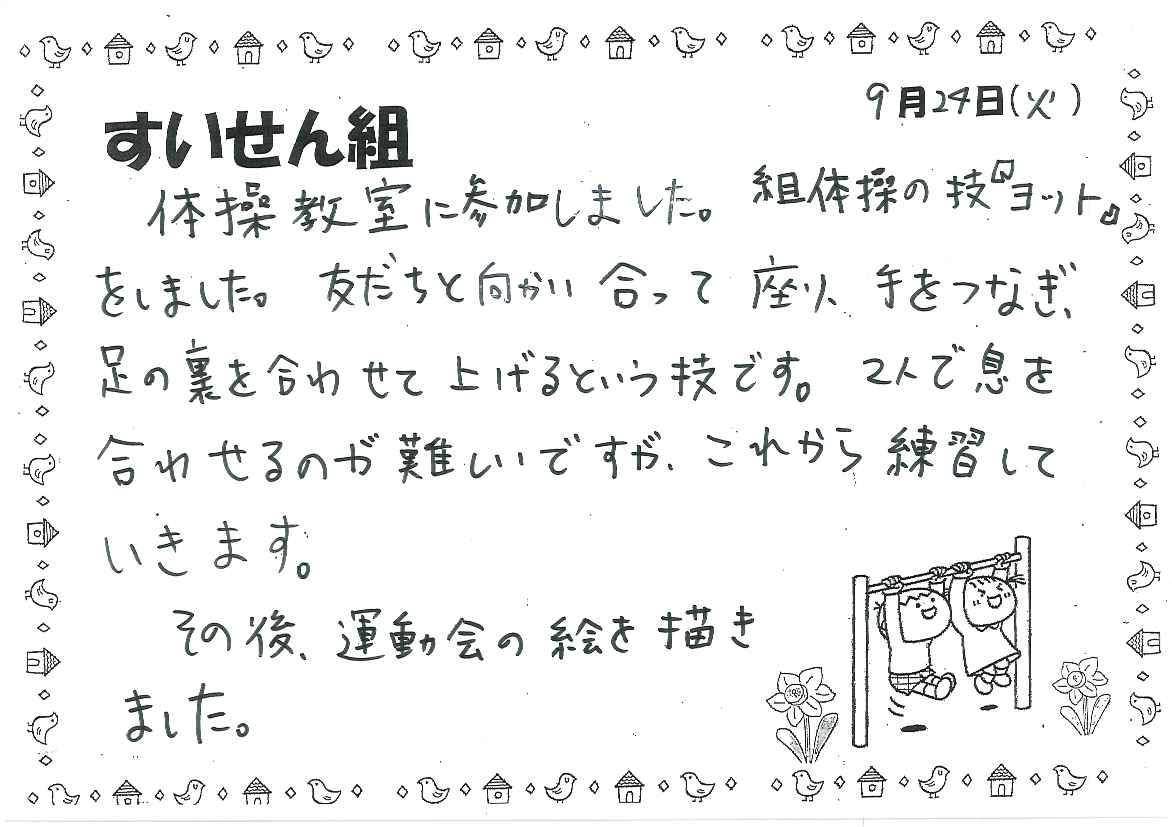 9月24日(火)
すいせん組
体操教室に参加しました。組体操の技『ヨット』
をしました。友だちと向かい合って座り、手をつなぎ、
足の裏を合わせて上げるという技です。2人で息を
合わせるのが難しいですが、これから練習して
いきます。
その後、運動会の絵を描き
ました。